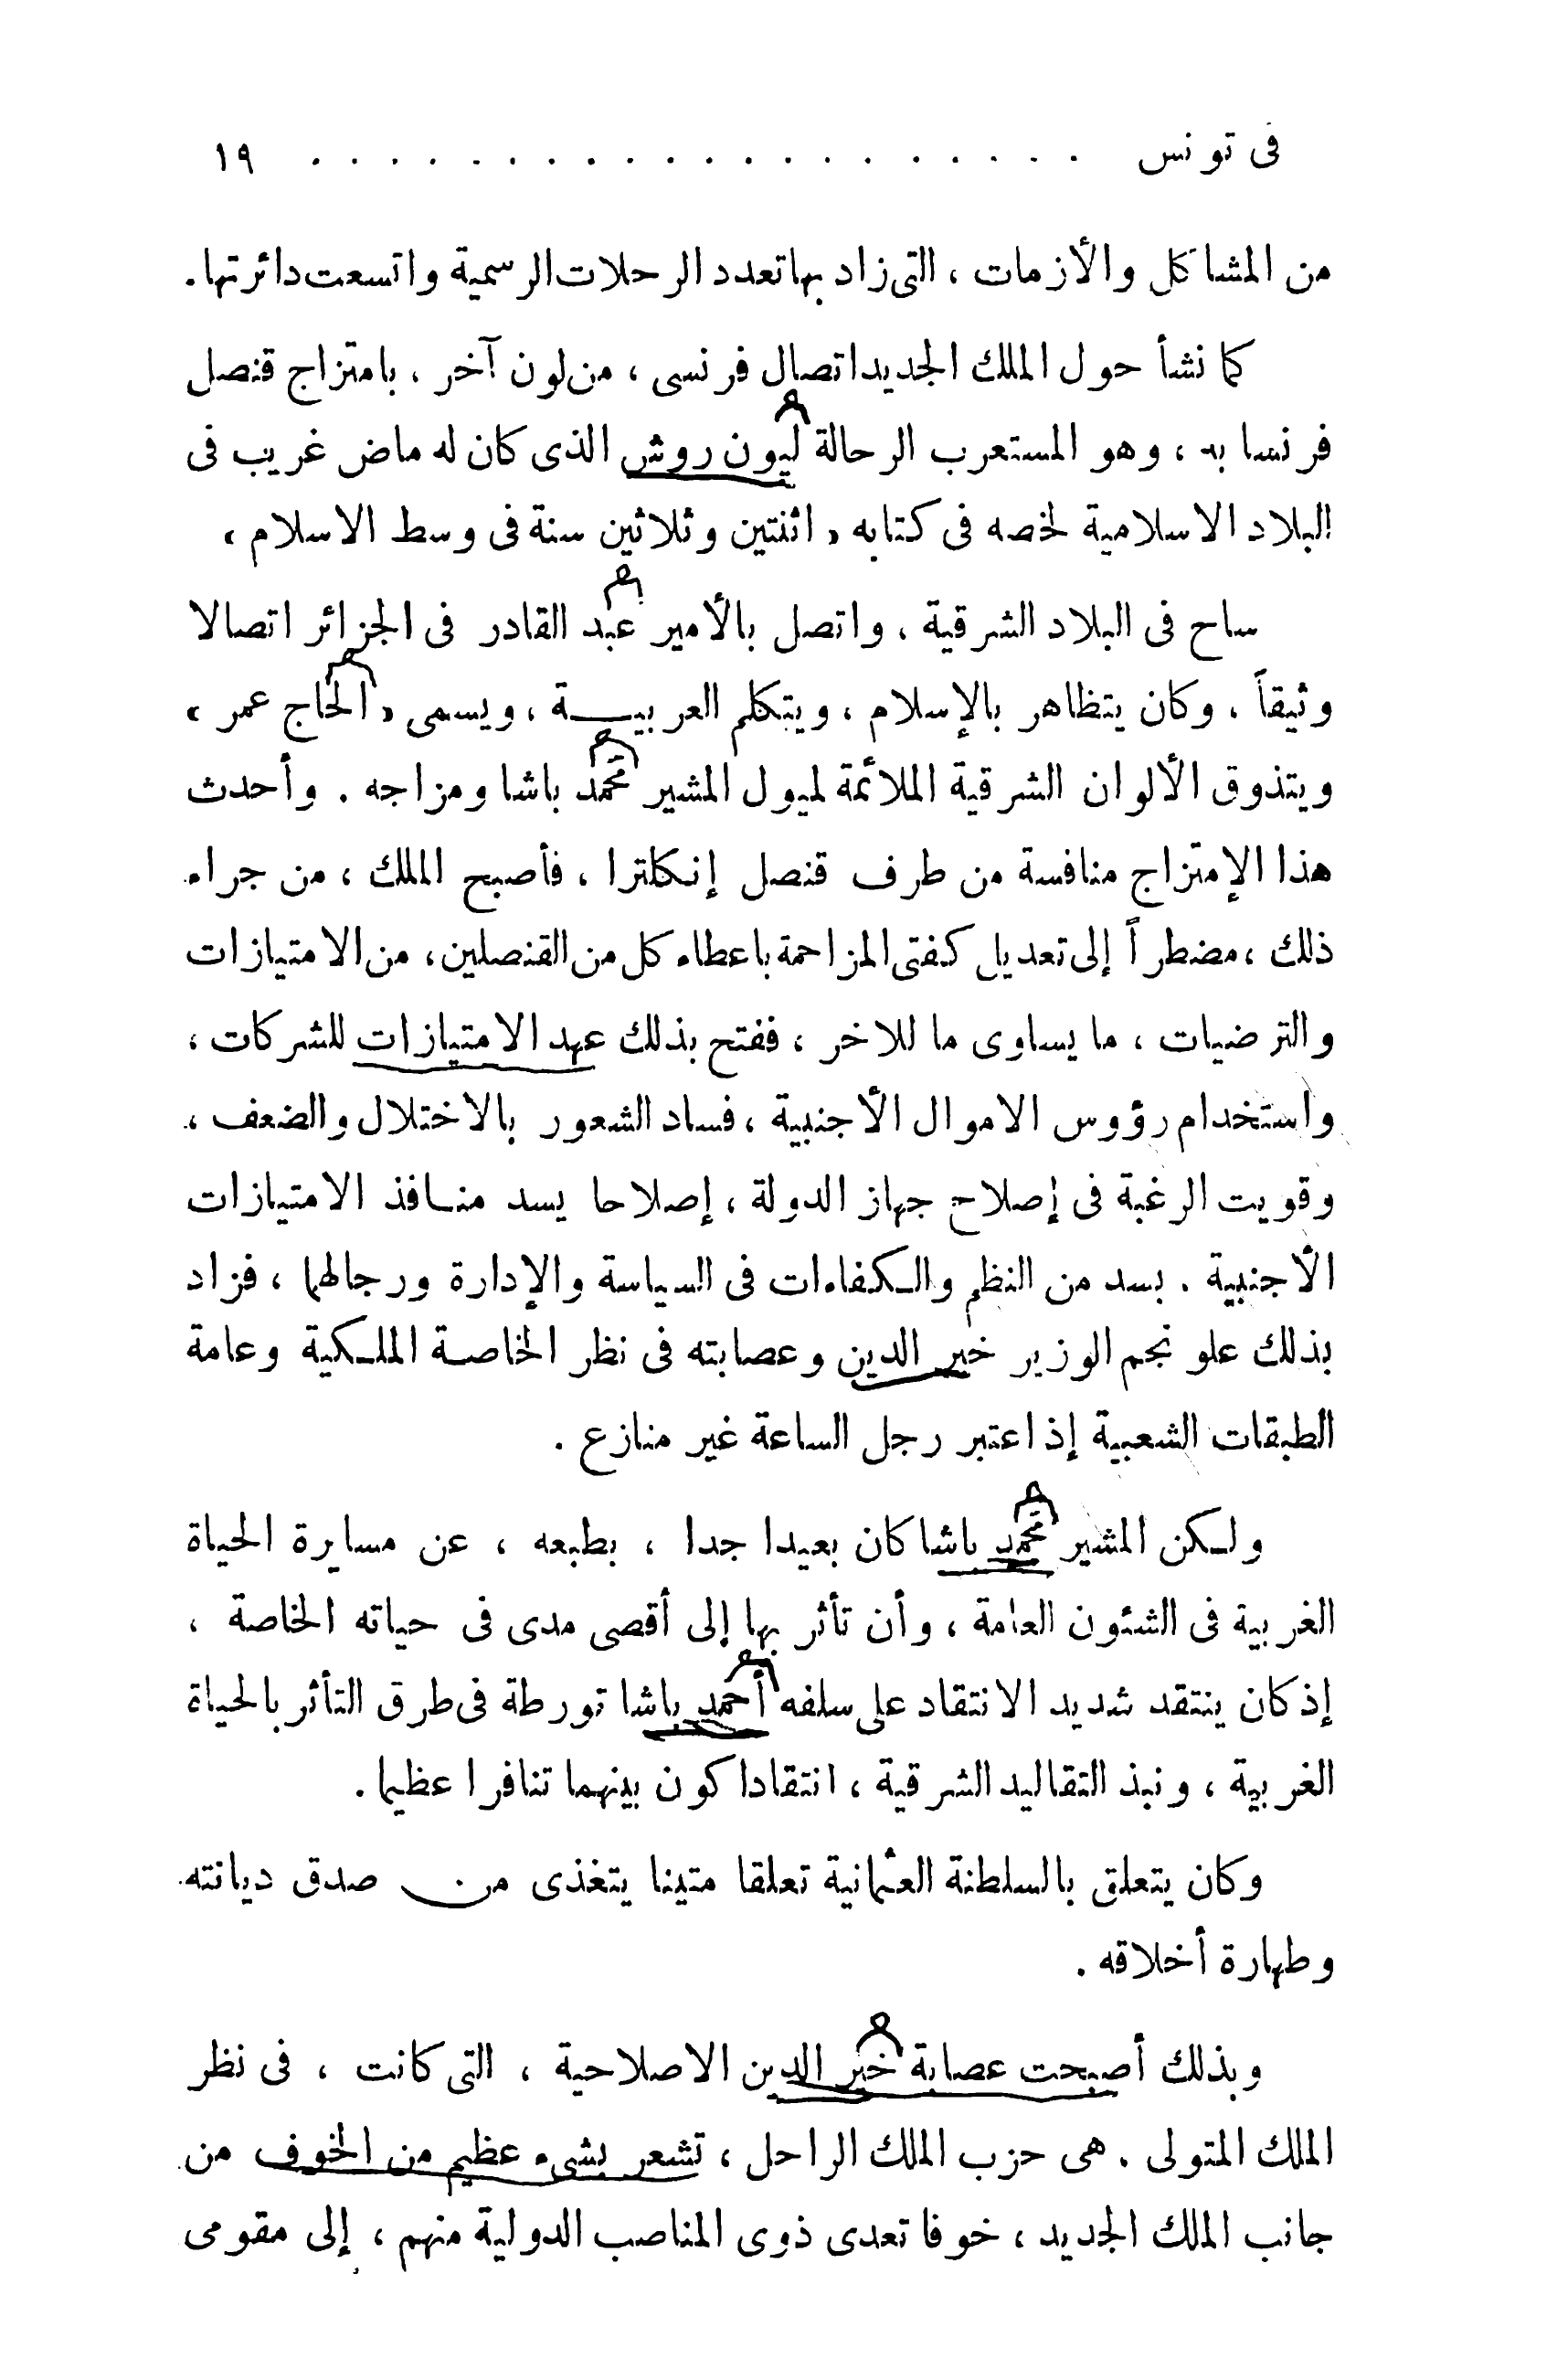 فى تونس . . . . . . . . . . . . . . . . . . . . ١٩
من المشاكل والأزمات ، التى زاد بها تعدد الرحلات الرسمية واتسعت دائرتها .
كما نشأ حول الملك الجديد اتصال فرنسى ، من لون آخر ، بامتزاج قنصل
فرنسا به ، وهو المستعرب الرحالة ليون روش الذى كان له ماض غريب فى
البلاد الاسلامية لخصه فى كتابه « اثنتين وثلاثين سنة فى وسط الاسلام »
ساح فى البلاد الشرقية ، واتصل بالأمير عبد القادر فى الجزائر اتصالا
وثيقاً ، وكان يتظاهر بالإسلام ، ويتكلم العربيـــة ، ويسمى « الحاج عمر »
ويتذوق الألوان الشرقية الملائمة لميول المشير محمد باشا ومزاجه . وأحدث
هذا الإمتزاج منافسة من طرف قنصل إنكلترا ، فأصبح الملك ، من جراء
ذلك ، مضطراً إلى تعديل كفتى المزاحمة باعطاء كل من القنصلين ، من الامتيازات
والترضيات ، ما يساوى ما للاخر ، ففتح بذلك عهد الامتيازات للشركات ،
واستخدام رؤوس الاموال الأجنبية ، فساد الشعور بالاختلال والضعف ،
وقويت الرغبة فى إصلاح جهاز الدولة ، إصلاحا يسد منـافذ الامتيازات
الأجنبية . بسد من النظم والـكفاءات فى السياسة والإدارة ورجالها ، فزاد
بذلك علو نجم الوزير خير الدين وعصابته فى نظر الخاصـة الملـكية وعامة
الطبقات الشعبية إذ اعتبر رجل الساعة غير منازع .
ولـكن المشير محمد باشا كان بعيدا جدا ، بطبعه ، عن مسايرة الحياة
الغربية فى الشئون العامة ، وأن تأثر بها إلى أقصى مدى فى حياته الخاصة ،
إذ كان ينتقد شديد الانتقاد على سلفه أحمد باشا تورطة فى طرق التأثر بالحياة
الغربية ، ونبذ التقاليد الشرقية ، انتقادا كون بينهما تنافرا عظيما .
وكان يتعلق بالسلطنة العثمانية تعلقا متينا يتغذى من صدق ديانته
وطهارة أخلاقه .
وبذلك أصبحت عصابة خير الدين الاصلاحية ، التى كانت ، فى نظر
الملك المتولى . هى حزب الملك الراحل ، تشعر بشىء عظيم من الخوف من
جانب الملك الجديد ، خوفا تعدى ذوى المناصب الدولية منهم ، إلى مقومى